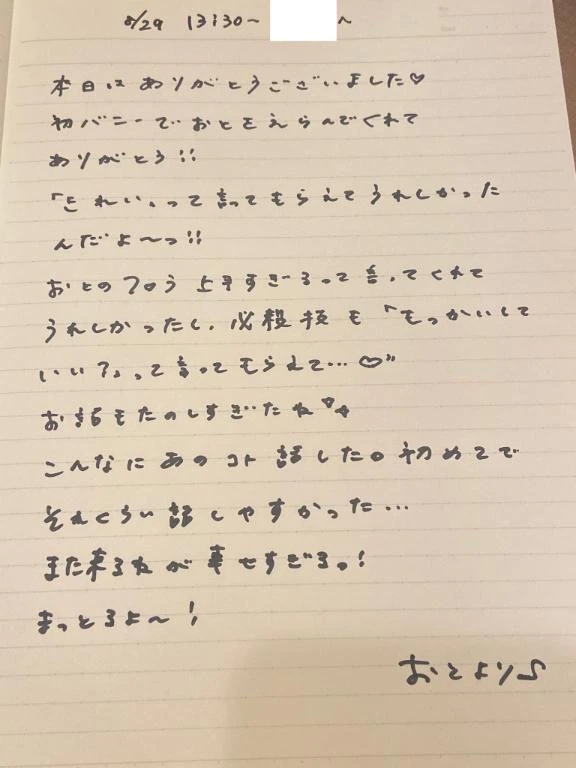 8/29 13:30〜 〜
本日は ありがとうございました♡
初バニーで おとをえらんでくれて
ありがとう!!
「きれい」って言ってもらえてうれしかった
んだよ〜っ!!
おとのフロう 上手すぎるって言ってくれて
うれしかったし、必殺技も「もっかいして
いい?」って言ってもらえて…♡"
お話もたのしすぎたね♡
こんなに あのコト 話したの初めてで
それくらい話しやすかった…
また来るねが幸せすぎるっ!
まっとるよ〜!
おとより♪